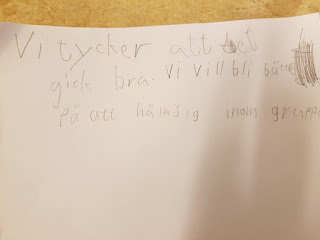 Vi tycker att det
gick bra. Vi vill bli
på att inom